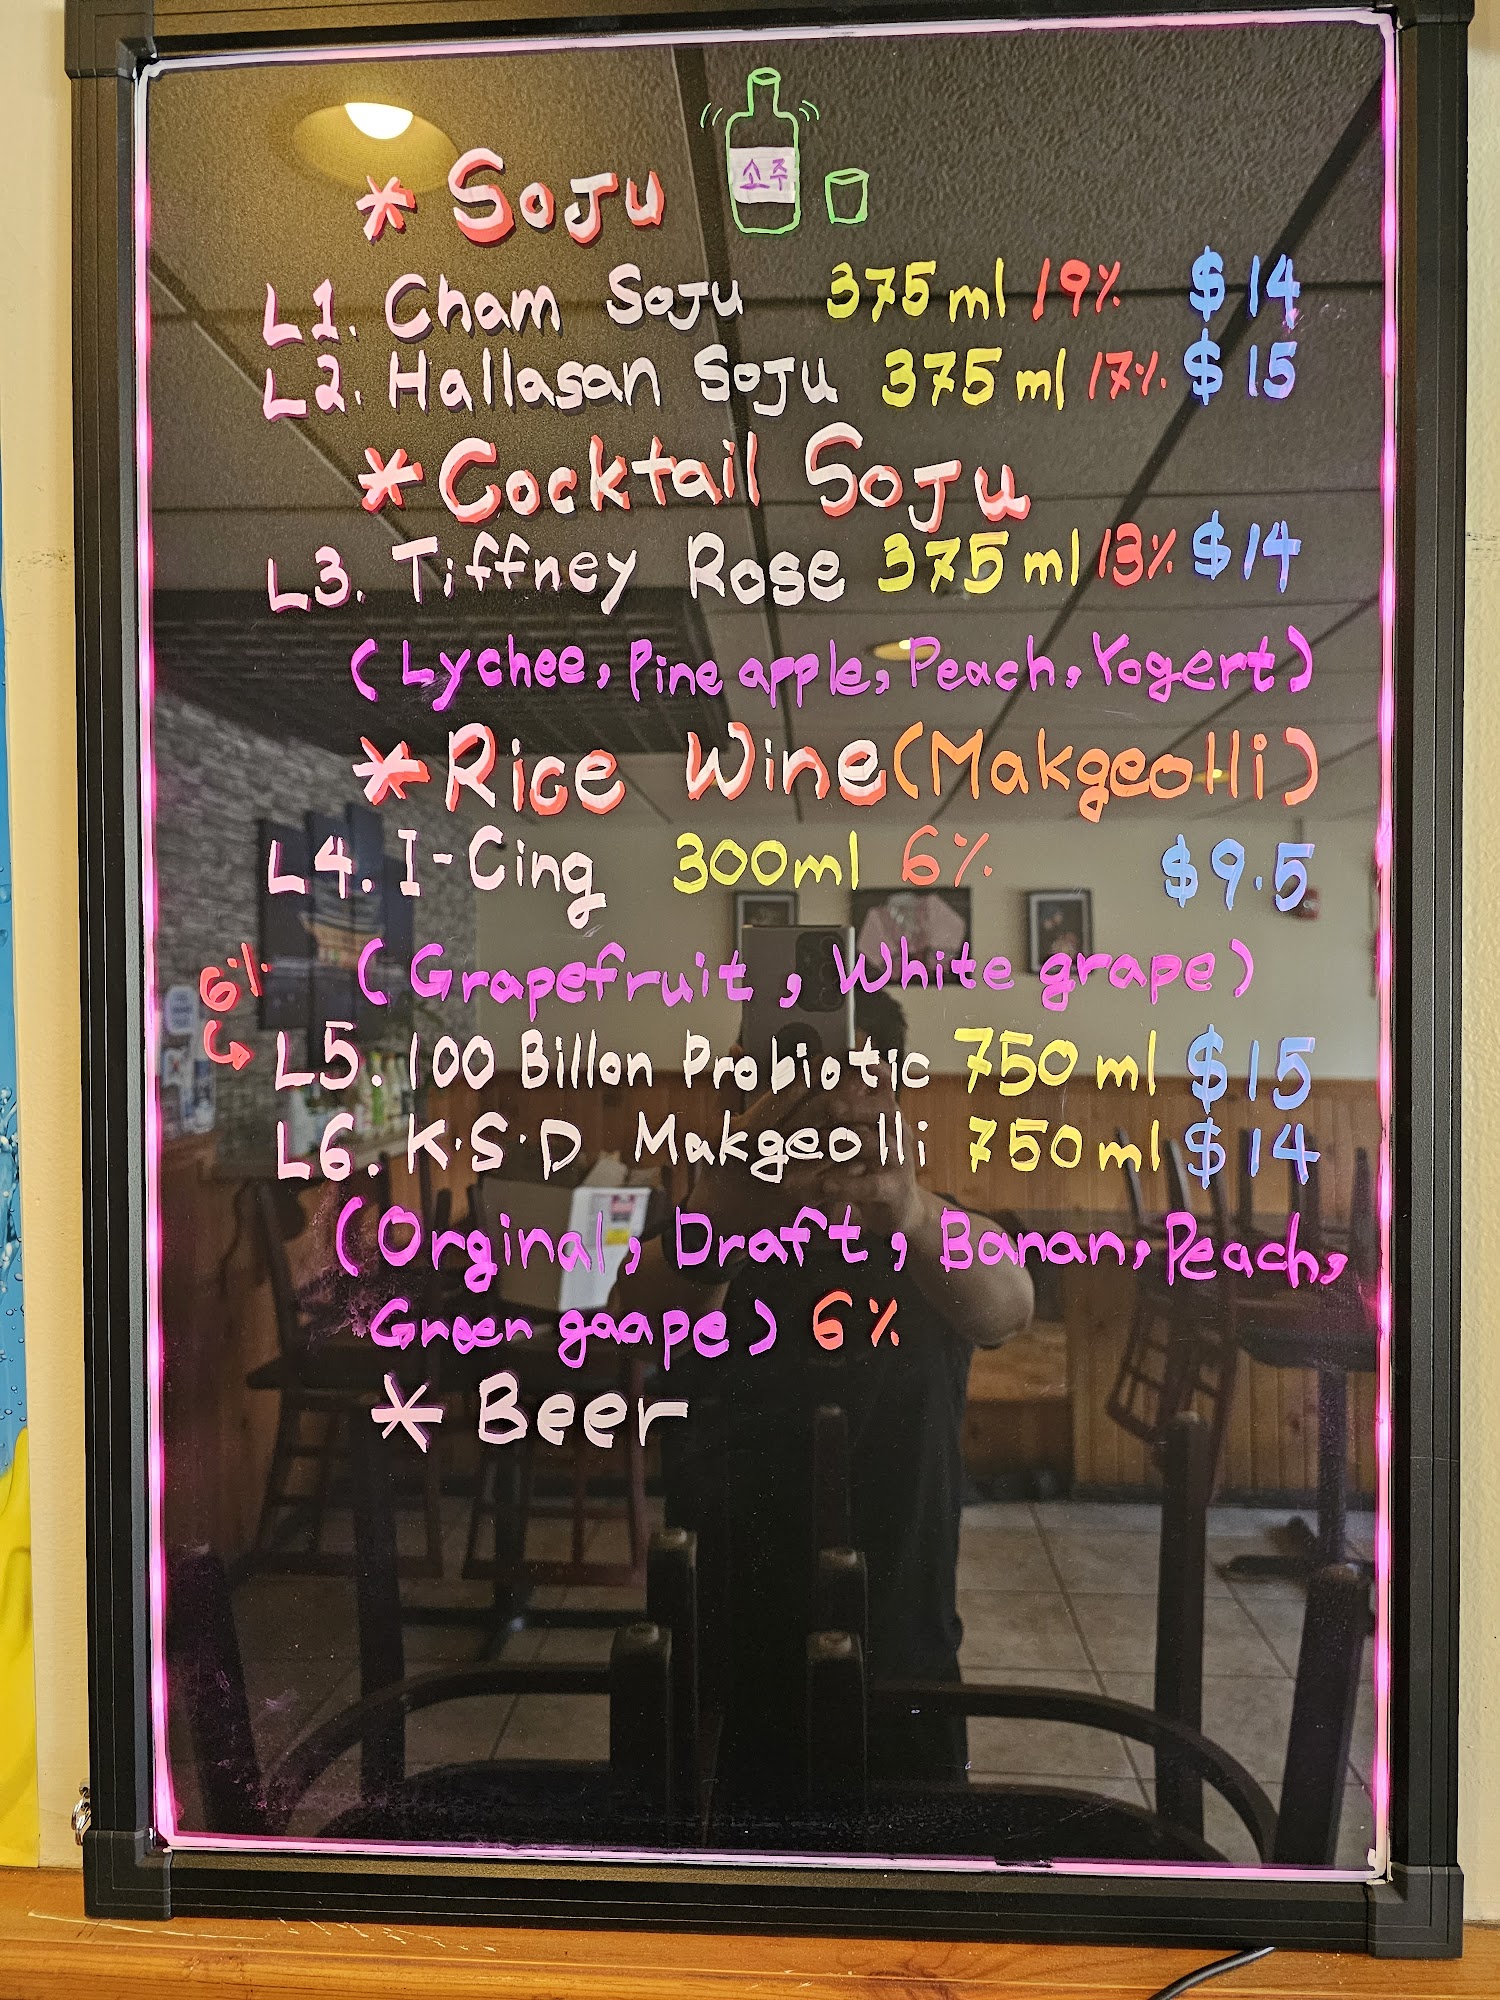 * Soju
소주
L1. Cham Soju 375 ml 19% $14
L2. Hallasan Soju 375 ml 17% $15
* Cocktail Soju
L3. Tiffney Rose 375 ml 13% $14
(Lychee, Pine apple, Peach, Yogert)
* Rice Wine (Makgeolli)
L4. I-Cing 300ml 6% $9.5
(Grapefruit, White grape)
6%
L5. 100 Billon Probiotic 750 ml $15
L6. K.S.D Makgeolli 750 ml $14
(Orginal, Draft, Banan, Peach,
Green gaape) 6%
* Beer